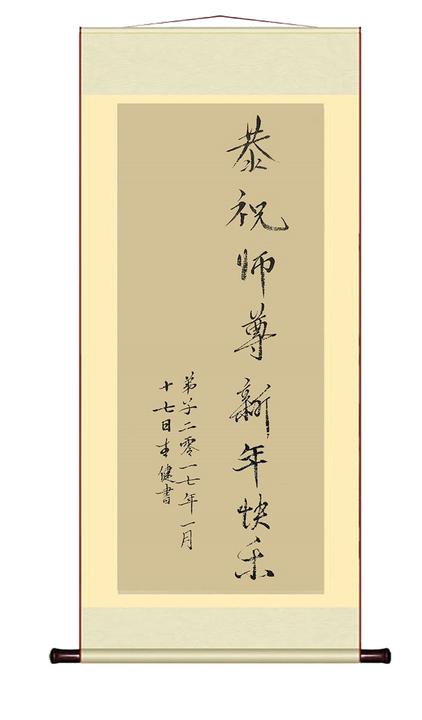 恭祝师尊新年快乐
弟子二零一七年一月
十七日李健書